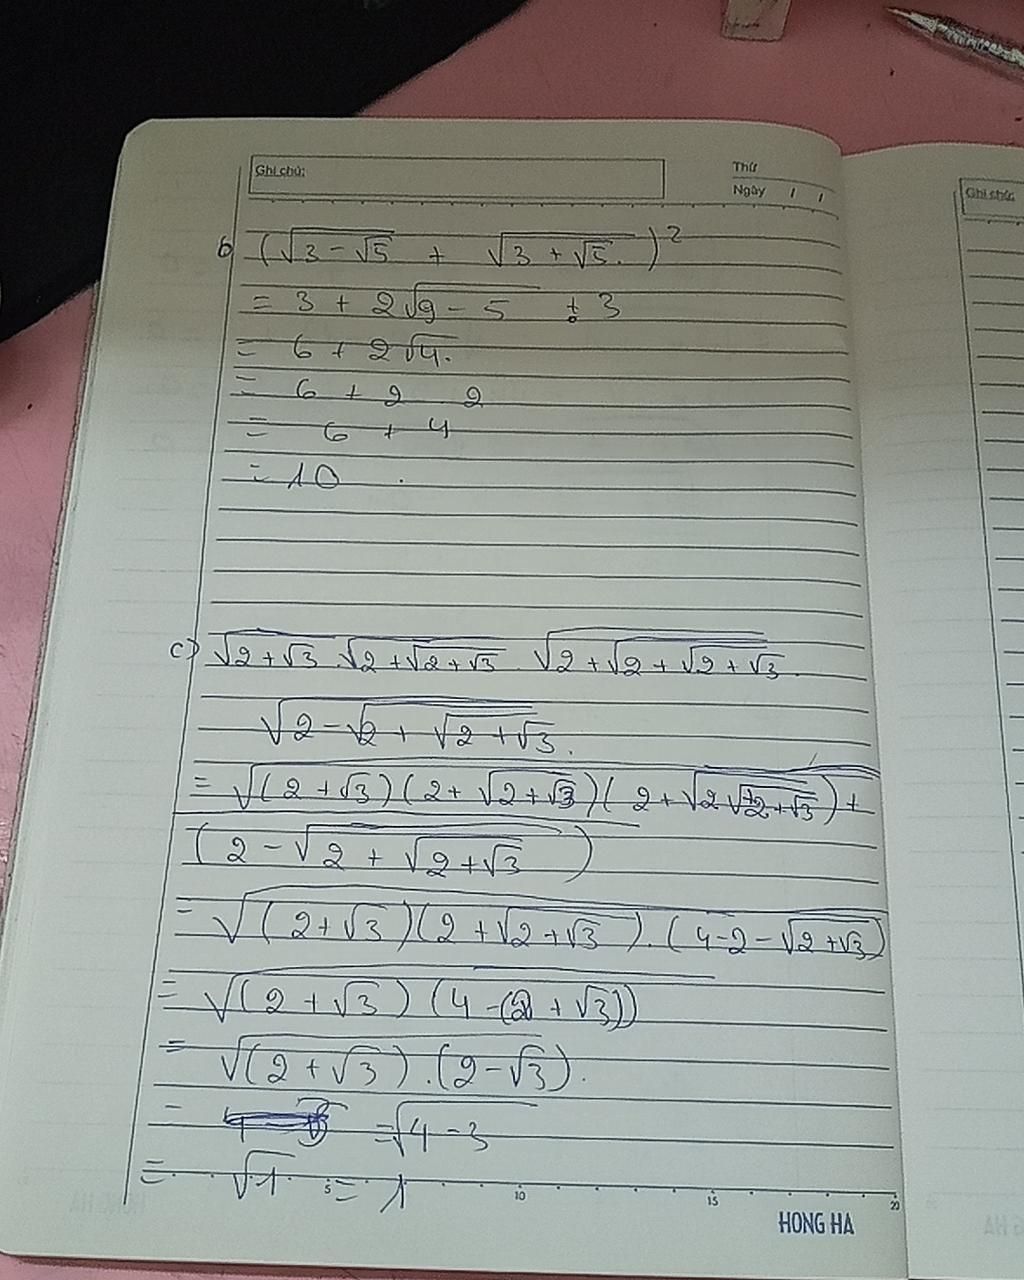 Ghi chú:
Thứ
Ngày / /
Ghi chú:
b) (√(3 - √5) + √(3 + √5).)²
= 3 + 2√(9 - 5) + 3
= 6 + 2√4.
= 6 + 2 2
= 6 + 4
= 10 .
c) √(2 + √3) . √(2 + √(2 + √3)) . √(2 + √(2 + √(2 + √3))) .
√(2 - √(2 + √(2 + √3))) .
= √((2 + √3)(2 + √(2 + √3))(2 + √(2 √(+2 + √3))) +
(2 - √(2 + √(2 + √3)))
= √((2 + √3)(2 + √(2 + √3)) . (4 - 2 - √(2 + √3))
= √((2 + √3)(4 - (2 + √3)))
= √((2 + √3) . (2 - √3)) .
= = √(4 - 3)
= √1 = 1
5 10 15 20
HONG HA